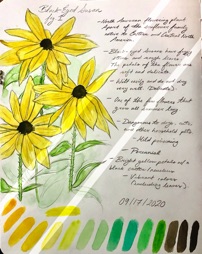 Black-Eyed Susans
by
- North American flowering plant
part of the sunflower family
native to Eastern and Central North
America.
- Black-eyed Susans have fuzzy
stems and rough leaves.
The petals of the flower are
soft and delicate.
- Wilts easily and do not dry
very well. (Delicate)
- One of the few flowers that
grow all summer long
- Dangerous to dogs, cats,
and other household pets
- Mild poisoning
- Perennial
- Bright yellow petals w/ a
black center
- Vibrant colors
(including leaves)
09/17/2020